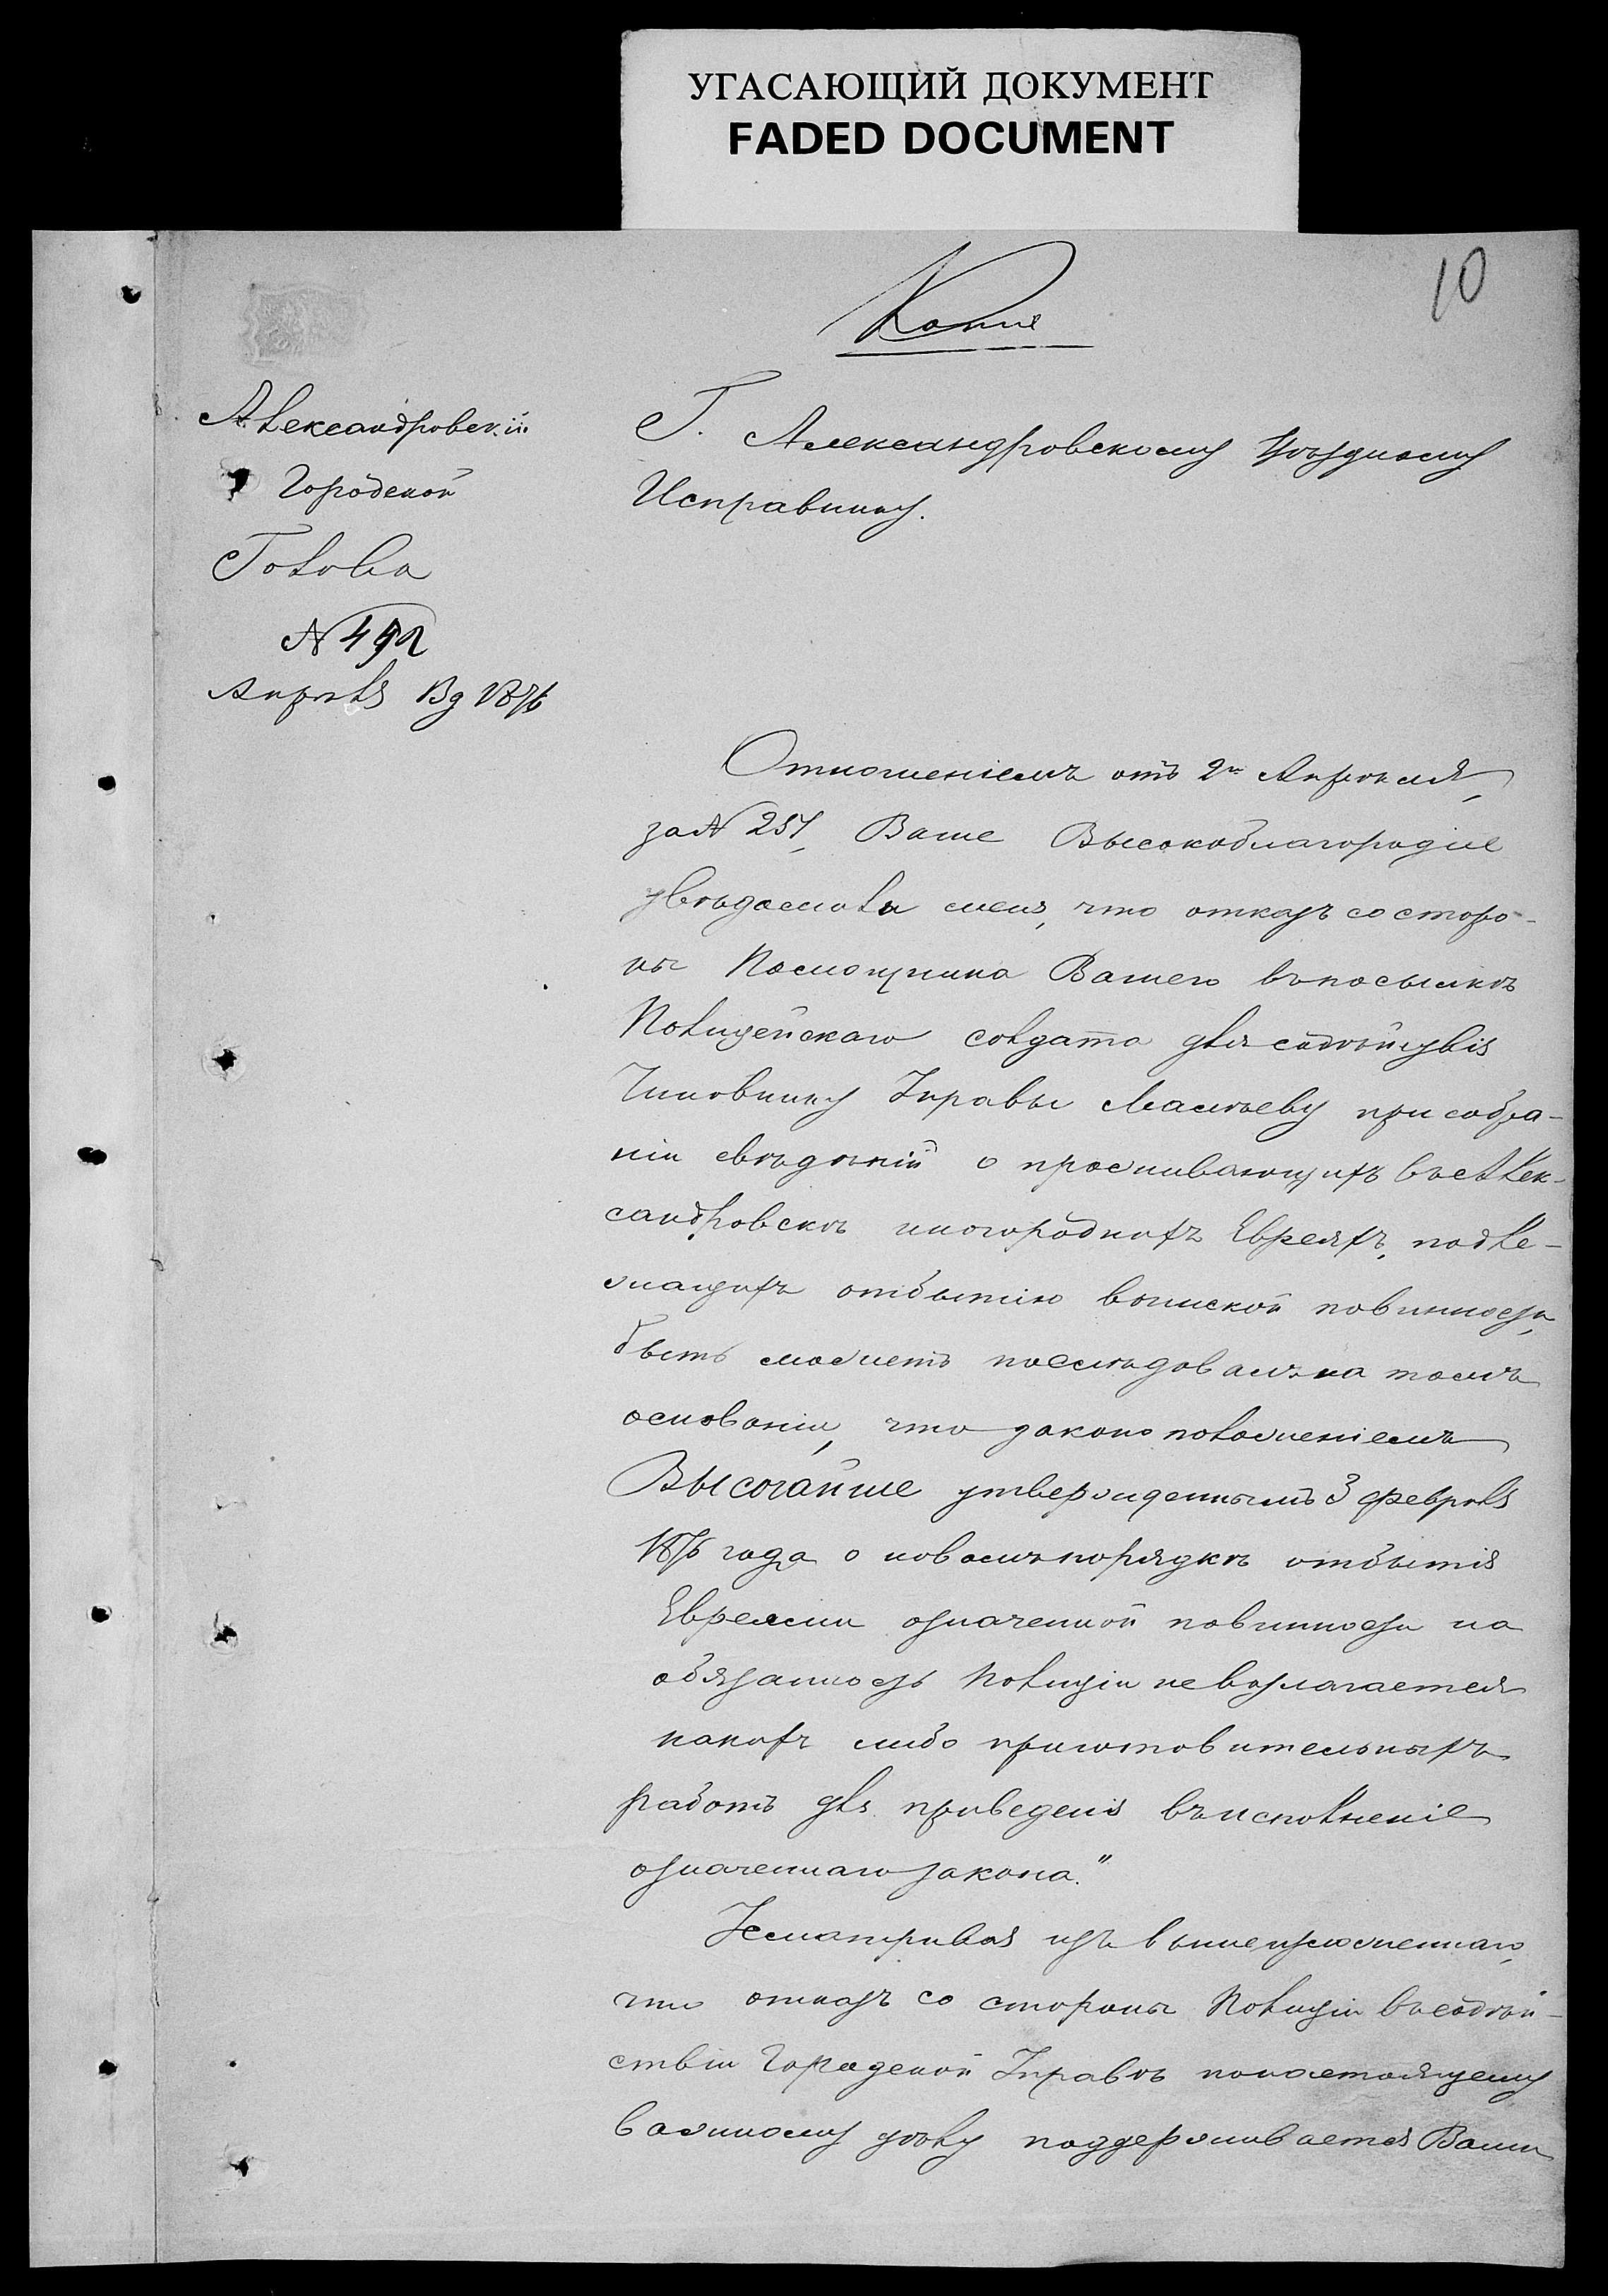 УГАСАЮЩИЙ ДОКУМЕНТ
FADED DOCUMENT
10
Копия
Александровскій
Городской
Голова
№ 492
Апрѣля 1876
Г. Александровскому Уѣздному
Исправнику.
Отношеніемъ отъ 2го Апрѣля,
за № 257, Ваше Высокоблагородіе
увѣдомили меня, что отказъ со сторо-
ны Помощника Вашего въ посылкѣ
Полицейскаго солдата для содѣйствія
Чиновнику Управы Мамѣеву при собра-
ніи свѣдѣній о проживающихъ въ Алек-
сандровскѣ иногороднихъ Евреяхъ, подле-
жащихъ отбытію воинской повинности,
быть можетъ послѣдовалъ на томъ
основаніи, что законоположеніемъ
Высочайше утвержденнымъ 3 февраля
1876 года о новомъ порядкѣ отбытія
Евреями означенной повинности на
обязанность Полиціи не возлагается
какихъ либо приготовительныхъ
работъ для приведенія въ исполненіе
означеннаго закона."
Усматривая изъ вышеизложеннаго,
что отказъ со стороны Полиціи въ содѣй-
ствіи Городской Управѣ по настоящему
важному дѣлу поддерживается Вами